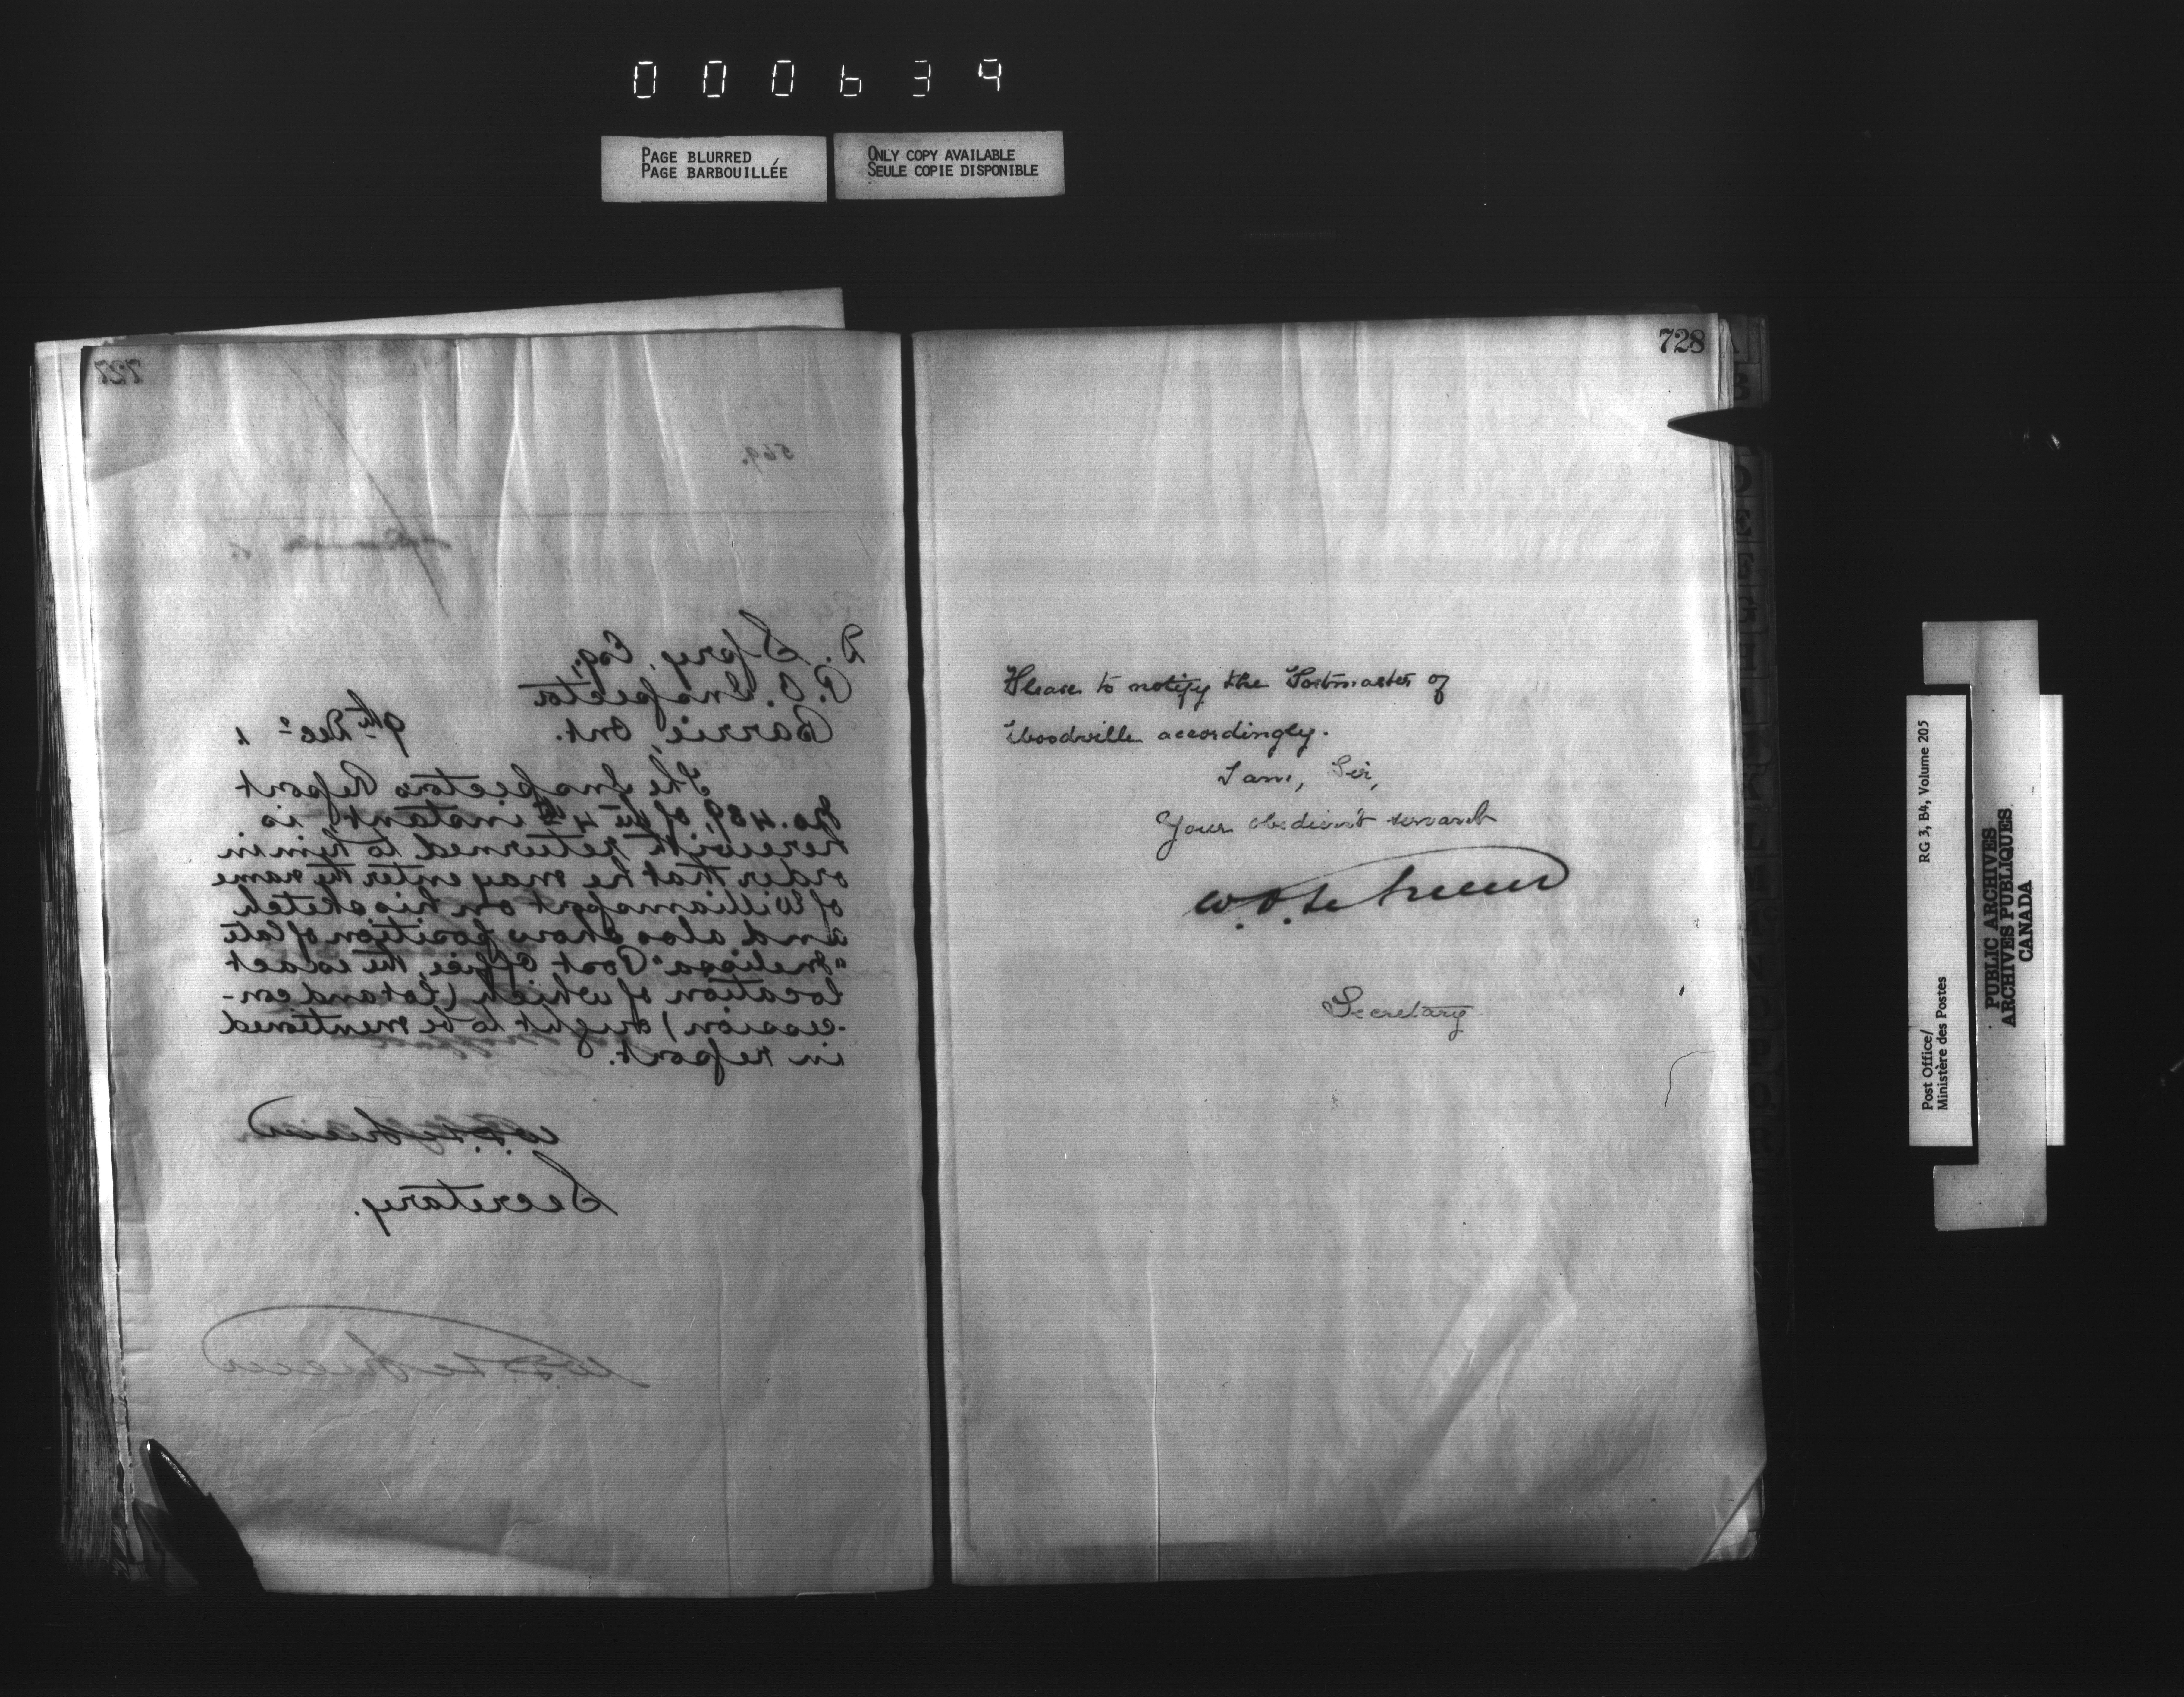 000639
PAGE BLURRED
PAGE BARBOUILLÉE
ONLY COPY AVAILABLE
SEULE COPIE DISPONIBLE
727
569.
R. Spry, Esq.,
P. O. Inspector
Barrie, Ont.
9th Decr 1
The Inspectors Report
No. 489, of the 4th instant, is
herewith returned to him in
order that he may enter the name
of Williamsfort on his sketch
and also show position of late
"Melissa" Post Office, the exact
location of which (lot and con-
-cession) ought to be mentioned
in report.
Secretary.
728
Please to notify the Postmaster of
Woodville accordingly.
I am, Sir,
Your obedient servant
Secretary
Post Office/
Ministère des Postes
RG 3, B4, Volume 205
PUBLIC ARCHIVES
ARCHIVES PUBLIQUES
CANADA